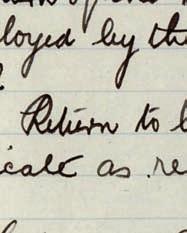 loyed by the
Return to b
icate as re